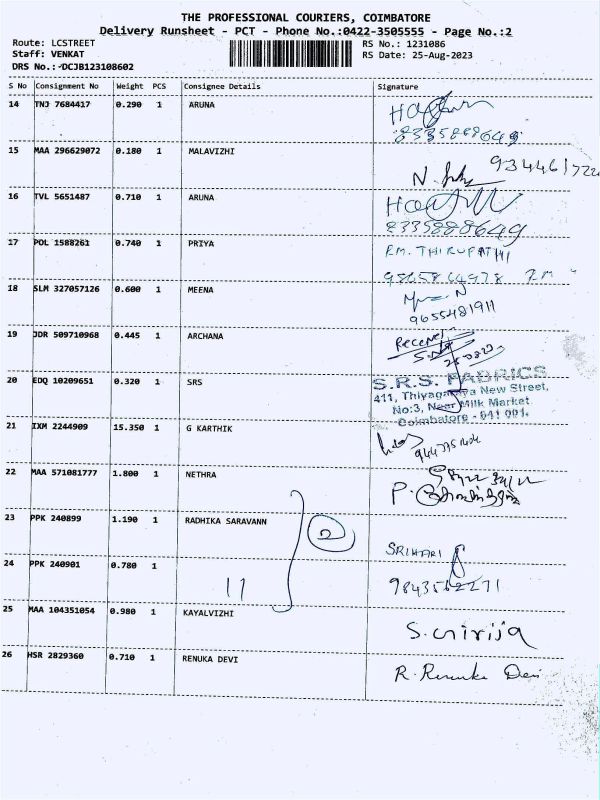 THE PROFESSIONAL COURIERS, COIMBATORE
Delivery Runsheet - PCT - Phone No.:0422-3505555 - Page No.:2
Route: LCSTREET RS No.: 1231086
Staff: VENKAT RS Date: 25-Aug-2023
DRS No.: DCJB123108602
S No Consignment No Weight PCS Consignee Details Signature
14 TNJ 7684417 0.290 1 ARUNA
8335888649
15 MAA 296629072 0.180 1 MALAVIZHI
16 TVL 5651487 0.710 1 ARUNA
8335888649
17 POL 1588261 0.740 1 PRIYA
P.M. THIRUPATHI
18 SLM 327057126 0.600 1 MEENA
9655481911
19 JDR 509710968 0.445 1 ARCHANA
20 EDQ 10209651 0.320 1 SRS
S.R.S. FABRICS
411, Thiyagaraya New Street,
No:3, Near Milk Market
Coimbatore - 641 001.
21 IXM 2244909 15.350 1 G KARTHIK
22 MAA 571081777 1.800 1 NETHRA
23 PPK 240899 1.190 1 RADHIKA SARAVANN
2
SRIHARI
24 PPK 240901 0.780 1
11
9843562271
25 MAA 104351054 0.980 1 KAYALVIZHI
S. Girija
26 HSR 2829360 0.710 1 RENUKA DEVI
R. Renuka Devi